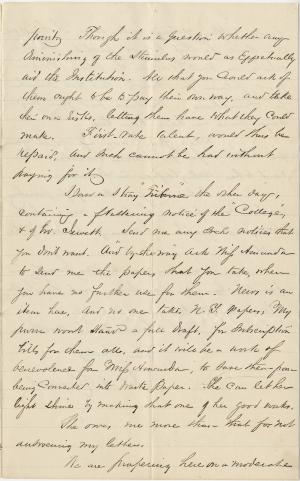 posity Though it is a question whether any
diminishing of the Stimulus would as Effectually
aid the Institution. All that you could ask of
them ought to be to pay their own way, and take
their own risks, letting them have what they could
make. First-rate talent, would thus be
repaid, and such cannot be had without
paying for it,
I saw a stray Tribune the other day,
containing a flattering notice of the "College,"
& of Mr. Jewett. Send me any such notices that
you don't want. And by the way ask Miss Amanda
to send me the papers that you take, when
you have no further use for them. News is an
item here, and no one takes N. Y. papers. My
purse wont stand a full draft, for Subscription
bills for them all, and it will be a work of
benevolence for Miss Amanda, to save them from
being converted into waste paper. She can let her
light shine by making that one of her good works.
She owes me more than that for not
answering my letters.
We are prospering here on a moderate